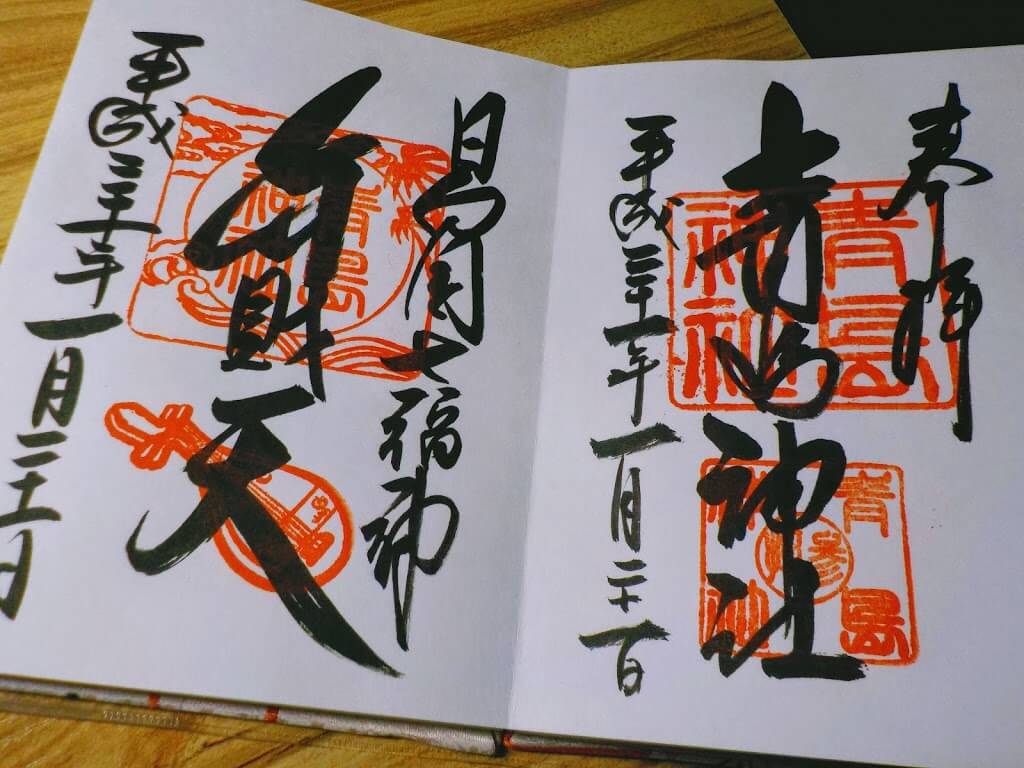 奉拝
青島神社
平成三十一年一月二十一日
青島
神社
青島
神社
日向国七福神
弁財天
平成三十一年一月二十一日
青島
神社